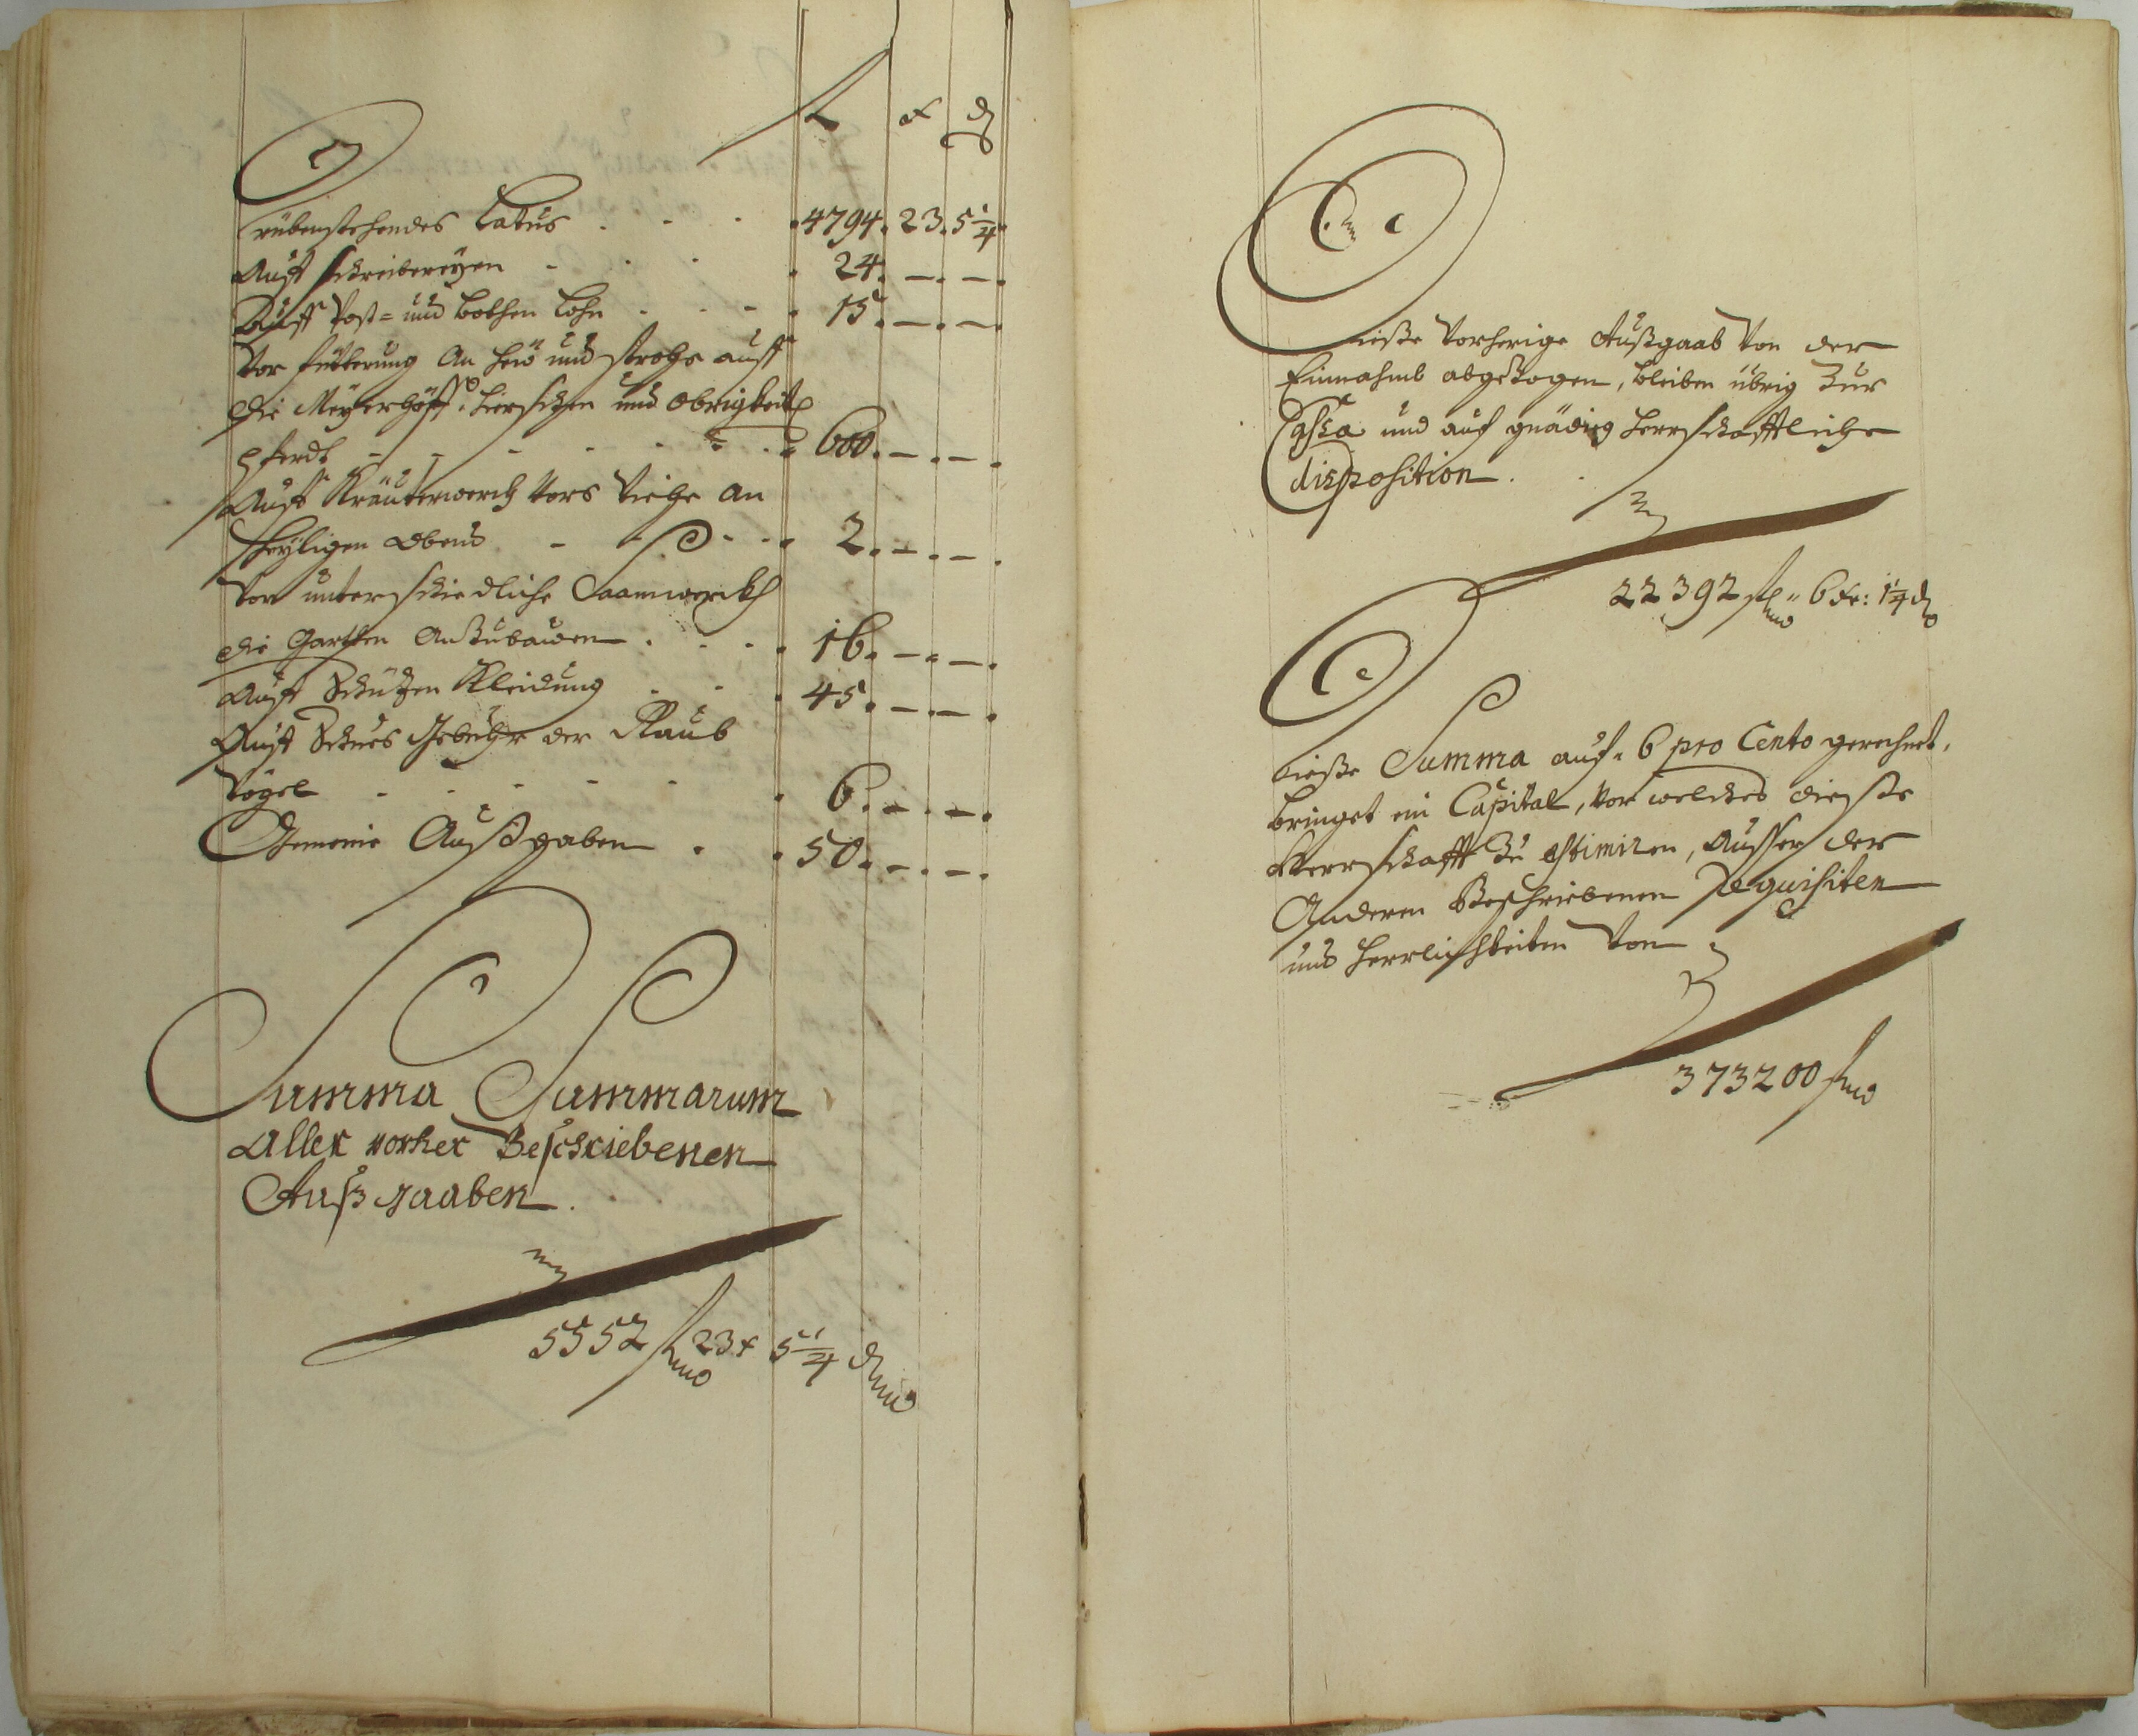 f x d
Drübenstehendes Latus . . . 4794. 23. 5 1/4
Auff Schreibereyen - . . . 24. —. —.
Auff Post= und Bothen Lohn . . . 15. —. —.
Vor fütterung an Heü und Strohe auff
die Meyerhöff, Hirschen und Obrigkeitl
Pferdt - - - - - 600. —. —.
Auff Kräuterwerch vors Viehe an
Heyligen Abend - - - 2. —. —.
Vor unterschiedliche Saamwerckh
die Garthen Anzubawen . . . 16. —. —.
Auff Schützen Kleidung . . . 45. —. —.
Auff Schues Gebühr der Raub
Vögel - - - - - 6. —. —.
Gemeine Außgaben . . 50. —. —.
Summa Summarum
Aller vorher Beschriebenen
Außgaaben.
5552 f 23 x 5 1/4 d
Dieße Vorherige Außgaab Von der
Einnahmb abgezogen, bleiben übrig Zur
Cassa und auf gnädig Herrschafftliche
disposition.
22392 f 6 xr: 1 1/4 d
Dieße Summa auf 6 pro Cento gerechnet,
bringet ein Capital, vor welches dieße
Herrschafft Zu estimiren, Ausser der
Anderen Beschriebenen Requisiten
und Herrlichkeiten Von
373200 f